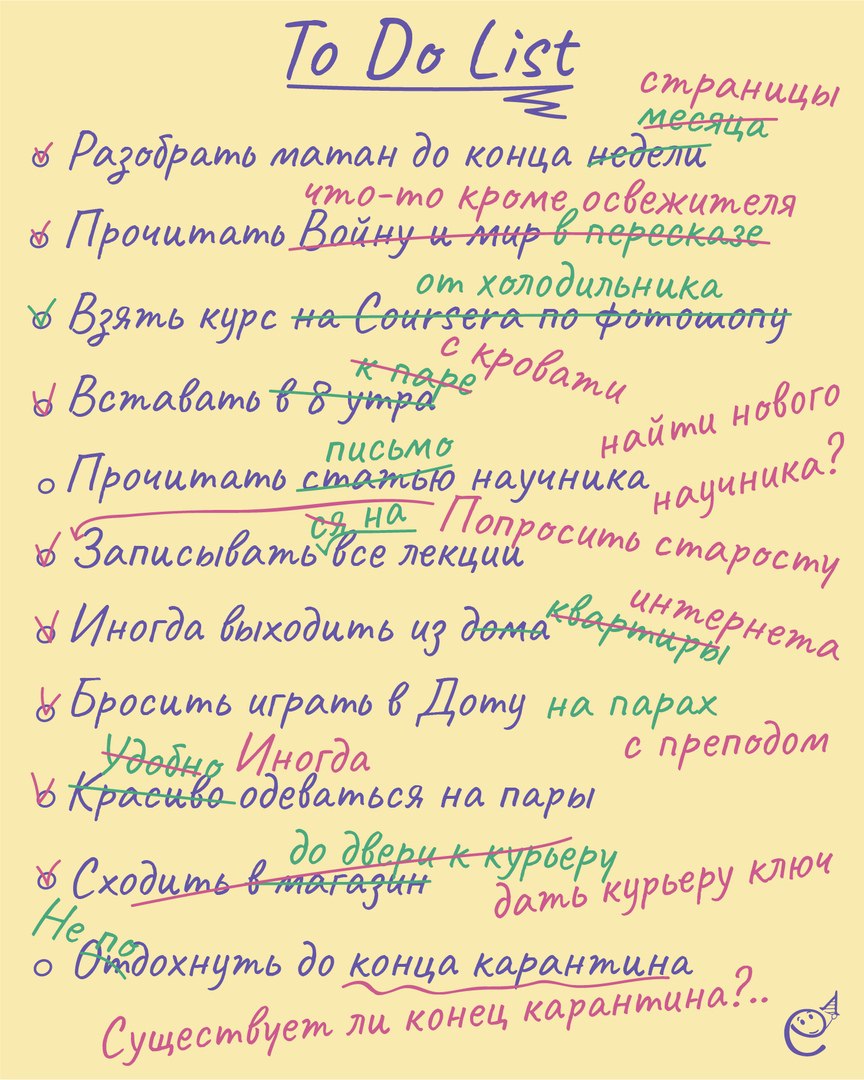 To Do List
страницы
месяца
Разобрать матан до конца недели
что-то кроме освежителя
Прочитать Войну и мир в пересказе
от холодильника
Взять курс на Coursera по фотошопу
к паре с кровати
Вставать в 8 утра
найти нового
письмо
Прочитать статью научника научника?
ся на Попросить старосту
Записывать все лекции
Иногда выходить из дома квартиры интернета
Бросить играть в Доту на парах
с преподом
Удобно Иногда
Красиво одеваться на пары
до двери к курьеру
Сходить в магазин дать курьеру ключ
Не по
Отдохнуть до конца карантина
Существует ли конец карантина?..